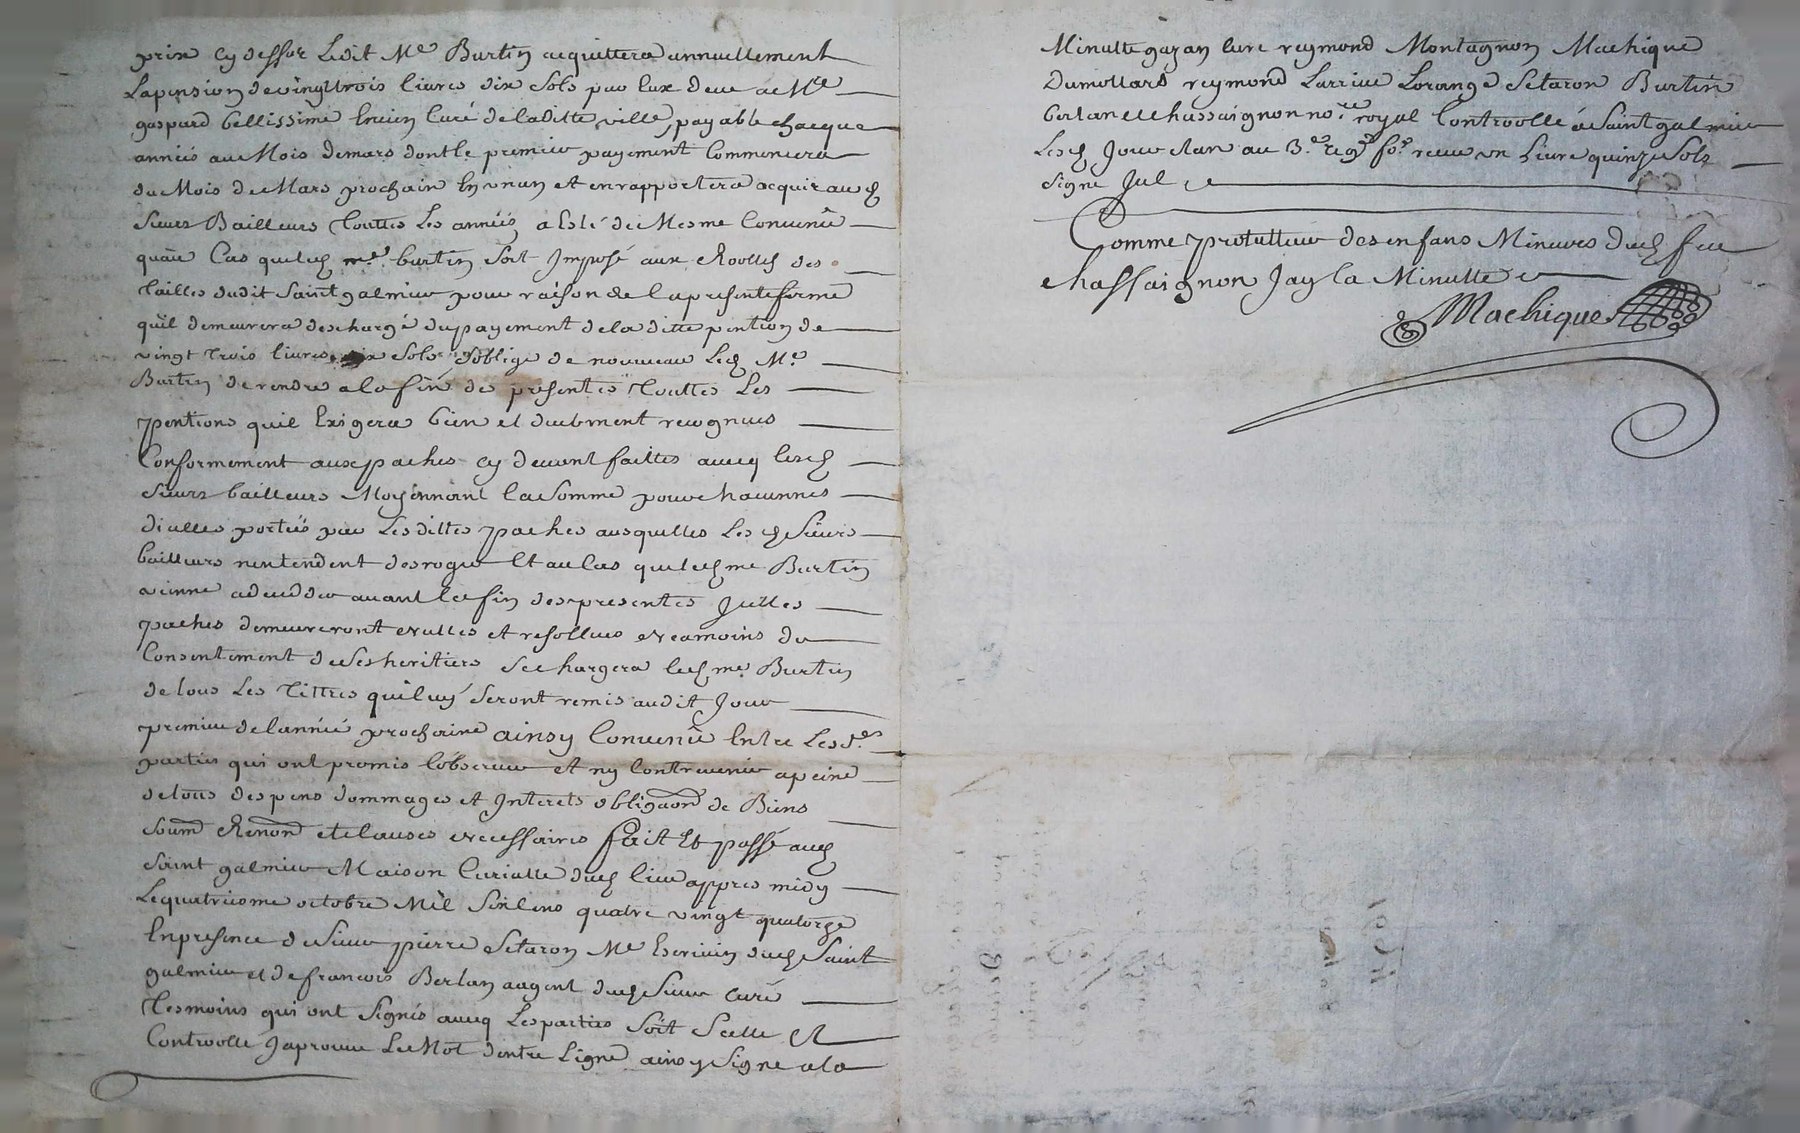 prix cy dessus Ledit Me Burtin acquittera annuellement
Lapension de vingttrois livres dix sols par eux deue a Mre
gaspard bellissime Encien Curé de laditte ville, payable chacque
année au Mois demars dont le premier payement Commencera
du Mois de Mars prochain En un an et en rapportera acquit aud
sieurs Bailleurs Touttes Les années a esté de Mesme Convenu
quau Cas queled me burtin soit Jmposé aux Roolles des
Tailles dudit Saint galmier pour raison de la presente ferme
quil demeurera deschargé du payement de la ditte pention de
vingt trois livres dix sols soblige de nouveau Led Me
Burtin de rendre a la fin des presentes Touttes Les
pentions quil Exigera bien et deubment recognues
Conformement aux paches cy devant faittes avecq lesd
sieurs bailleurs Moyennant la somme pour chacunnes
dicelles portées par Lesdittes paches ausquelles Lesd sieurs
bailleurs nentendent desroger Et au Cas queled me Burtin
vienne a decedder avant la fin des presentes Jcelles
paches demeureront nulles et resollues neamoins du
Consentement de ses heritiers se chargera led me Burtin
de tous Les Tittres qui luy seront remis audit Jour
premier de lannée prochaine ainsy Convenu Entre Lesd
parties qui ont promis lobserver et ny Contrevenir a peine
de tous despens dommages et Jnterets obligaon de Biens
soumon Renon et clauses necessaires fait Et passé aud
saint galmier Maison Curialle dud lieu appres midy
Lequatriesme octobre Mil Six Cens quatre vingt quatorze
En presence de sieur pierre Setaron Me Escrivin dud Saint
galmier et de francois Berlan aagent dud sieur Curé
Tesmoins qui ont signés avecq Les parties soit scelle et
Controolle Japrouve Le Mot dentre Ligne ainsy signe a la
Minutte gazan Cure reymond Montagnon Machique
Dumollard reymond Larrive Lorange Setaron Burtin
berlan et chassaignon nore royal Controolle a Saint galmier
Lesd Jour et an au 3e reg fo receu un Livre quinze sols
signe Jul
Comme protutteur des enfans Mineurs dud feu
chassaignon Jay la Minutte
Machique